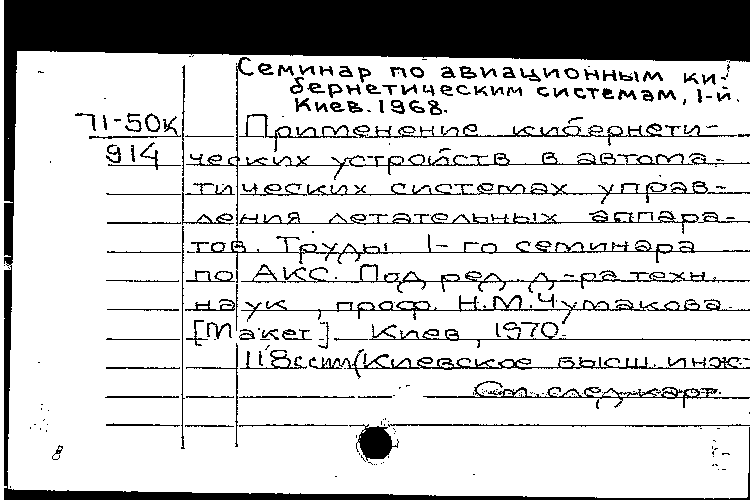 Семинар по авиационным ки-
бернетическим системам, 1-й.
Киев. 1968.
71-50к
914
Применение кибернети-
ческих устройств в автома-
тических системах управ-
ления летательных аппара-
тов. Труды 1-го семинара
по АКС. Под ред. д-ра техн.
наук, проф. Н.М.Чумакова
[Макет]. Киев, 1970.
118 с. (Киевское высш. инж-
См. след. карт.
8